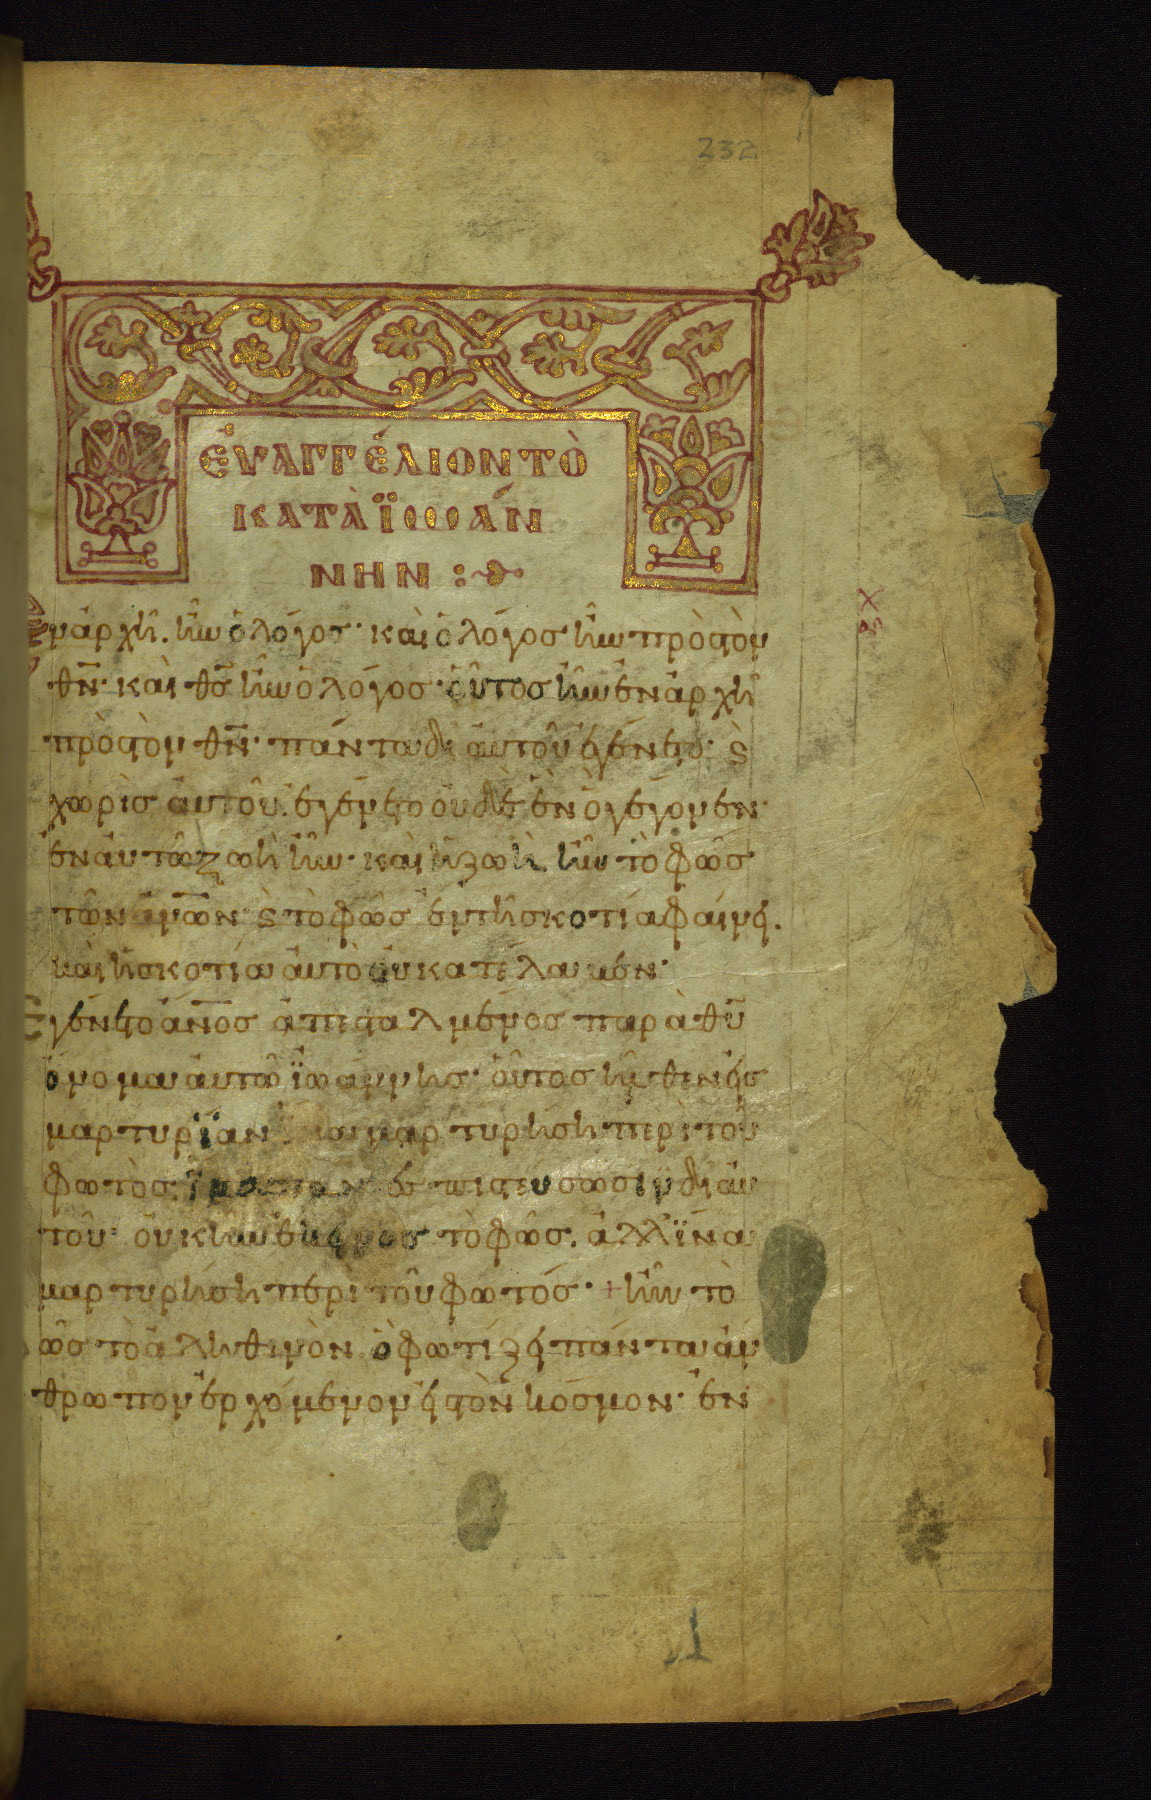 232
ἐυαγγέλιον τὸ
κατὰ ϊωάν
νην :
Ἐν ἀρχῆ. ἦν ὁ λόγος· καὶ ὁ λόγος ἦν πρὸς τὸν
θ̅ν̅· καὶ θ̅ς̅ ἦν ὁ λόγος· οὗτος ἦν ἐν ἀρχῆ
πρὸς τὸν θ̅ν̅· πάντα δι αὐτοῦ ἐγένετο· ϗ
χωρὶς αὐτοῦ. ἐγένετο οὐδὲ ἓν ὃ γέγονεν·
ἐν αὐτῶ ζωὴ ἦν· καὶ ἡ ζωὴ ἦν τὸ φῶς
τῶν ἀν̅ω̅ν· ϗ τὸ φῶς ἐν τῆ σκοτία φαίνει.
καὶ ἡ σκοτία αὐτὸ οὐ κατέλαβεν·
Ἐγένετο ἄν̅ο̅ς ἀπεσταλμένος παρὰ θ̅υ̅
ὄνομα αὐτῶ ϊωάννης· οὗτος ἦλθεν εἰς
μαρτυρΐαν ἵνα μαρτυρήση περὶ τοῦ
φωτὸς· ϊνα πάντες πιστεύσωσιν δι αὐ
τοῦ· οὐκ ἦν ἐκεῖνος τὸ φῶς. ἀλλ ϊνα
μαρτυρήση περὶ τοῦ φωτός· + ἦν τὸ
φῶς τὸ ἀληθινὸν ὃ φωτίζει πάντα ἄν
θρωπον ἐρχόμενον εἰς τὸν κόσμον· ἐν